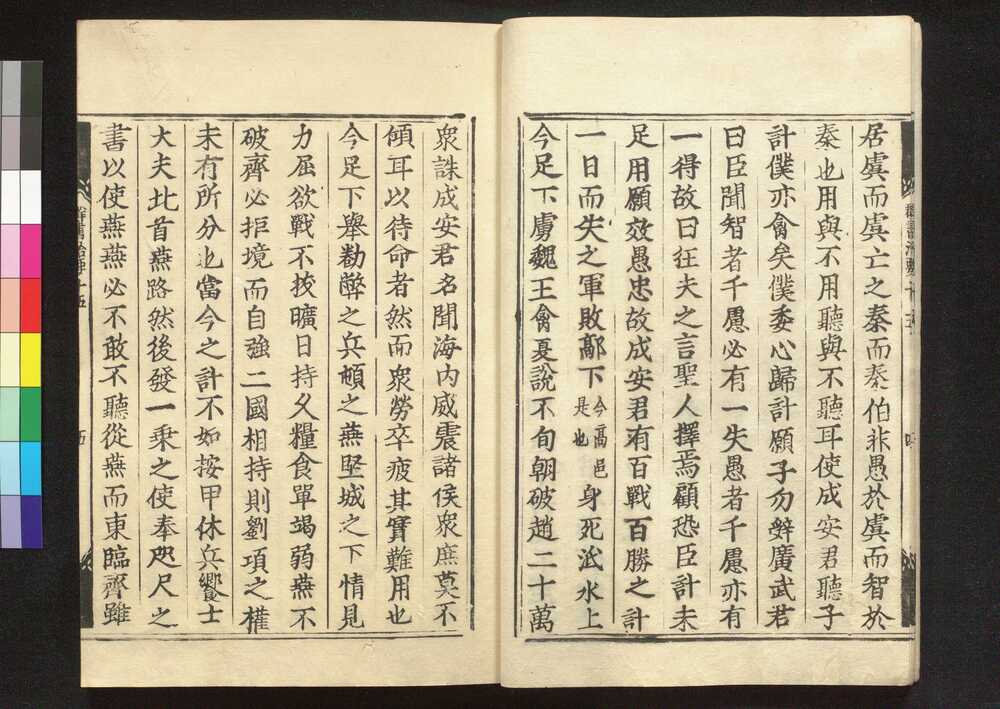 居虞而虞亡之秦而秦伯非愚於虞而智於
秦也用與不用聽與不聽耳使成安君聽子
計僕亦禽矣僕委心歸計願子勿辤廣武君
曰臣聞智者千慮必有一失愚者千慮亦有
一得故曰狂夫之言聖人擇焉顧恐臣計未
足用願效愚忠故成安君有百戰百勝之計
一日而失之軍敗鄗下今高邑是也身死泜水上
今足下虜魏王禽夏說不旬朝破趙二十萬
衆誅成安君名聞海内威震諸侯衆庶莫不
傾耳以待命者然而衆勞卒疲其實難用也
今足下舉勌弊之兵頓之燕堅城之下情見
力屈欲戰不拔曠日持久糧食單竭弱燕不
破齊必拒境而自強二國相持則劉項之權
未有所分也當今之計不如按甲休兵饗士
大夫北首燕路然後發一乘之使奉咫尺之
書以使燕燕必不敢不聽從燕而東臨齊雖
群書治要十五